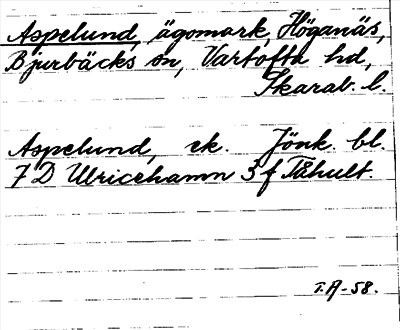 Aspelund, ägomark, Höganäs,
Bjurbäcks sn, Vartofta hd,
Skarab. l.
Aspelund, ek. Jönk. bl.
7 D Ulricehamn 3 f Tåhult.
T.A-58.